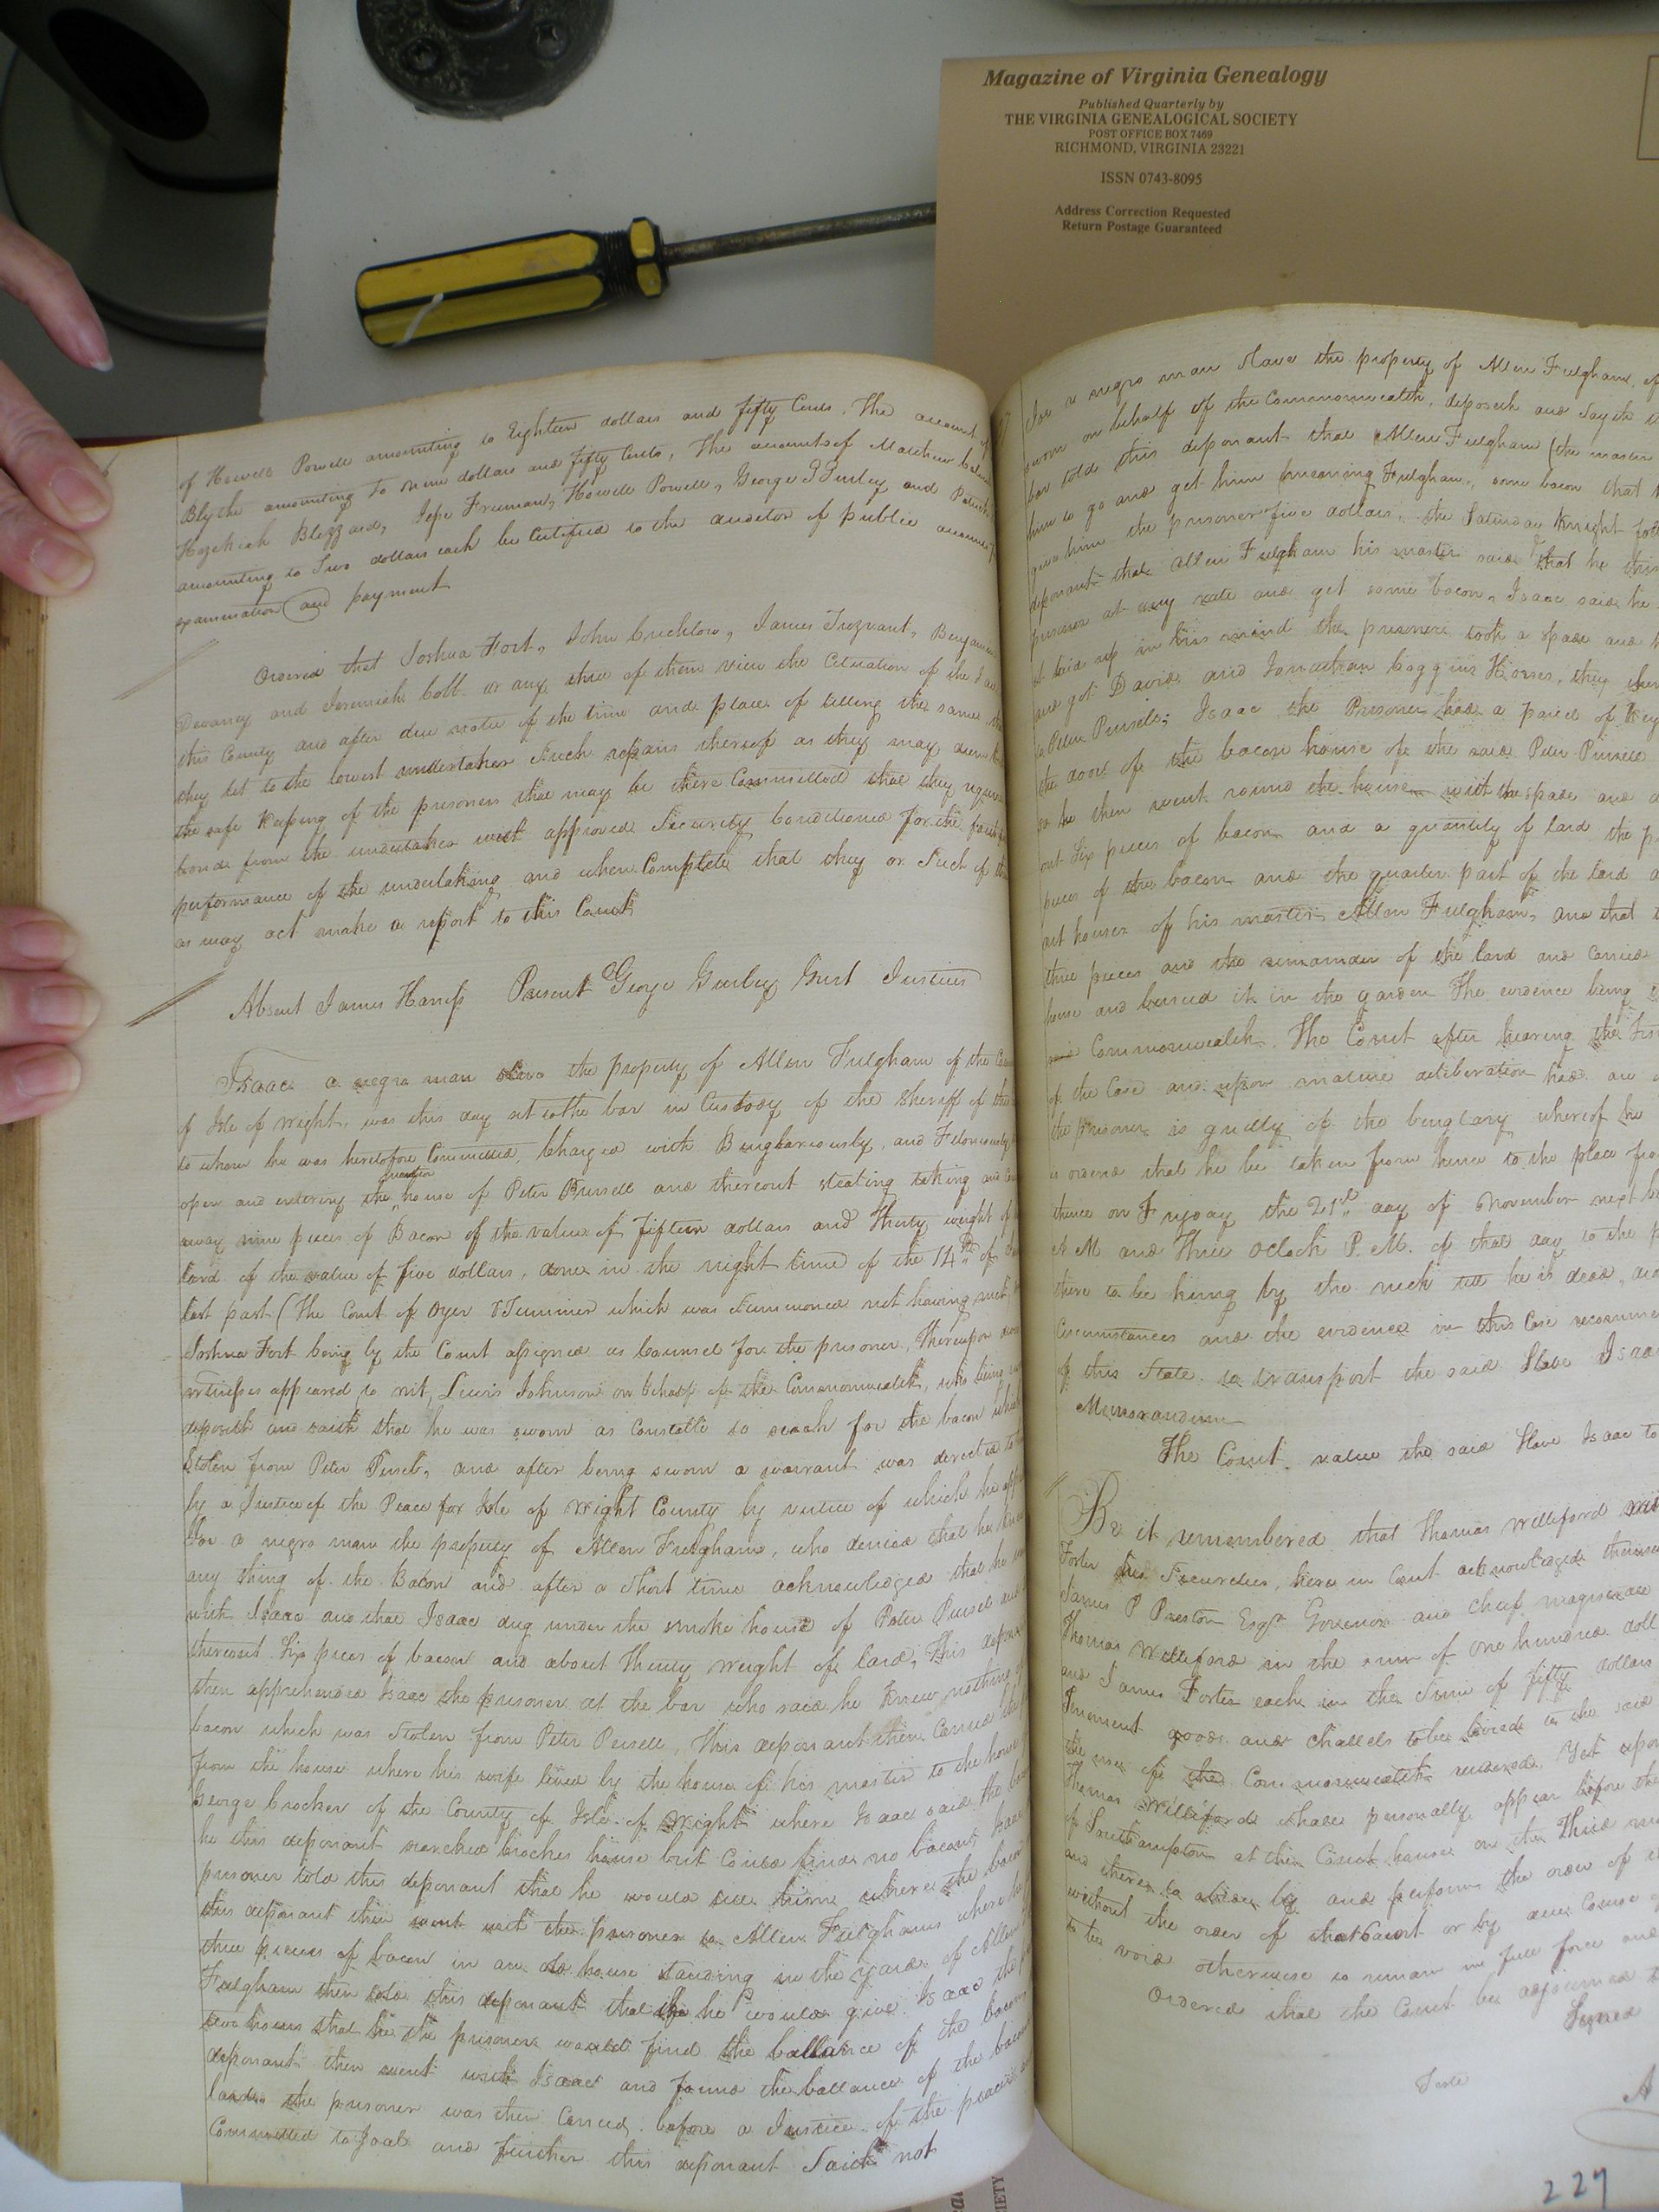 Magazine of Virginia Genealogy
Published Quarterly by
THE VIRGINIA GENEALOGICAL SOCIETY
POST OFFICE BOX 7469
RICHMOND, VIRGINIA 23221
ISSN 0743-8095
Address Correction Requested
Return Postage Guaranteed
of Howell Powell amounting to Eighteen dollars and fifty Cents, The account of
Blythe amounting to nine dollars and fifty Cents, The amounts of Matthew
Hezekiah Blizzard, Jesse Freeman, Howell Powell, George Gurley and
amounting to Two dollars each be Certified to the auditor of public accounts
examination and payment
Ordered that Joshua Fort, John Crichlow, James Trezvant, Benjamin
Devaney and Jeremiah Cobb or any three of them view the Cituation of the
this County and after due notice of the time and place of letting the same
they let to the lowest undertaker Such repairs thereof as they may deem
the safe keeping of the prisoners that may be there Committed that they require
bond from the undertaker with approved Security Conditioned for the
performance of the undertaking and when Complete that they or Such of them
as may act make a report to this Court
Absent James Harriss Present George Gurley Gent Justices
Isaac a negro man slave the property of Allen Fulgham of the
of Isle of Wight, was this day set to the bar in Custody of the Sheriff of this
to whom he was heretofore Committed, Charged with Burglariously, and Feloniously
open and entering the house of Peter Pursell and thereout stealing taking and
away nine pieces of Bacon of the value of fifteen dollars and Thirty weight of
Lard of the value of five dollars, done in the night time of the 14th of
last past (The Court of Oyer & Terminer which was Summoned not having met
Joshua Fort being by the Court assigned as Counsel for the prisoner, Thereupon
witnesses appeared to wit, Lewis Johnson on behalf of the Commonwealth, who being
deposeth and saith that he was sworn as Constable to search for the bacon
Stolen from Peter Pursel, and after being sworn a warrant was directed to
by a Justice of the Peace for Isle of Wight County by virtue of which he
Joe a negro man the property of Allen Fulgham, who denied that he knew
any thing of the Bacon and after a Short time acknowledged that he
with Isaac and that Isaac dug under the smoke house of Peter Pursel and
thereout Six pieces of bacon and about Thirty weight of lard, This
then apprehended Isaac the prisoner at the bar who said he Knew nothing of
bacon which was Stolen from Peter Pursell, This deponant then Carried
from the house where his wife lived by the house of his master to the house
George Crocker of the County of Isle of Wight where Isaac said the
he this deponant searched Crockers house but Could find no bacon, Isaac
prisoner told this deponant that he would where the bacon
this deponant then went with the prisoner to Allen Fulghams where
three pieces of bacon in an old house standing in the yard of Allen
Fulgham then told this deponant that if he would give Isaac the
two hours that he the prisoner would find the ballance of the bacon
deponant then went with Isaac and found the ballance of the bacon
lard, the prisoner was then Carried before a Justice of the peace
Committed to Jail and further this deponant Saith not
Joe a negro man Slave the property of Allen Fulgham, of
sworn on behalf of the Commonwealth, deposeth and Sayth
bar told this deponant that Allen Fulgham (the master
him to go and get him (meaning Fulgham, some bacon that
give him the prisoner five dollars, the Saturday Knight
deponant that Allen Fulgham his master said that he this
prisoner at any rate and get some bacon, Isaac said he
it laid up in his mind the prisoner took a spade and
and got David and Jonathan Coggins Horses, they
to Peter Pursels, Isaac the Prisoner had a parcel of Keys
the door of the bacon house of the said Peter Pursell
so he then went round the house with the spade and
out Six pieces of bacon and a quantity of lard the
pieces of the bacon and the quarter part of the lard
out houses of his master Allen Fulgham, and that
three pieces and the remainder of the lard and carried
house and buried it in the garden The evidence being
Commonwealth. The Court after hearing the
of the Case and upon mature deliberation had are
the prisoner is guilty of the burglary whereof he
is ordered that he be taken from hence to the place from
thence on Fryday the 21st day of November next
A M and Three oclock P. M. of that day to the
there to be hung by the neck till he is dead, and
Circumstances and the evidence in this Case recommend
of this State to transport the said Slave Isaac
Memorandum
The Court value the said Slave Isaac to
Be it remembered that Thomas Williford
Foster his Securities, here in Court acknowledged themselves
James P Preston Esqr Governor and Chief magistrate
Thomas Williford in the sum of one hundred
and James Foster each in the Sum of fifty dollars
Tenement goods and Chattels to be levied to the said
the use of the Commonwealth rendered. Yet upon
Thomas Williford shall personally appear before the
of Southampton at the Court house on the Third
and there to abide by and perform the order of
without the order of that Court or by due Course
to be void otherwise to remain in full force and
Ordered that the Court be adjourned
Signed
Teste
227